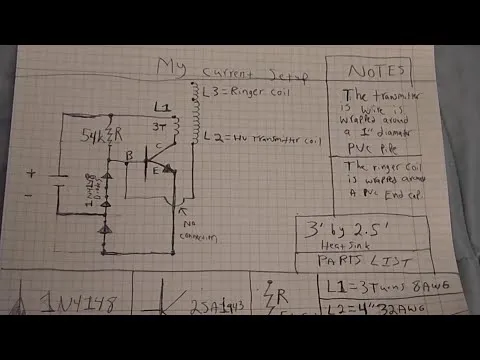 My current Setup
L1
3T
L3 = Ringer coil
L2 = HV Transmitter coil
54k R
C
B
E
1N4148
Diodes
+
-
No
connection
NOTES
The transmitter
is wire is
wrapped around
a 1" diameter
PVC pipe
The ringer coil
is wrapped around
A PVC End cap.
3' by 2.5'
Heat sink
PARTS LIST
1N4148
2SA1943
R
L1 = 3 Turns 8 AWG
L2 = 4" 32 AWG